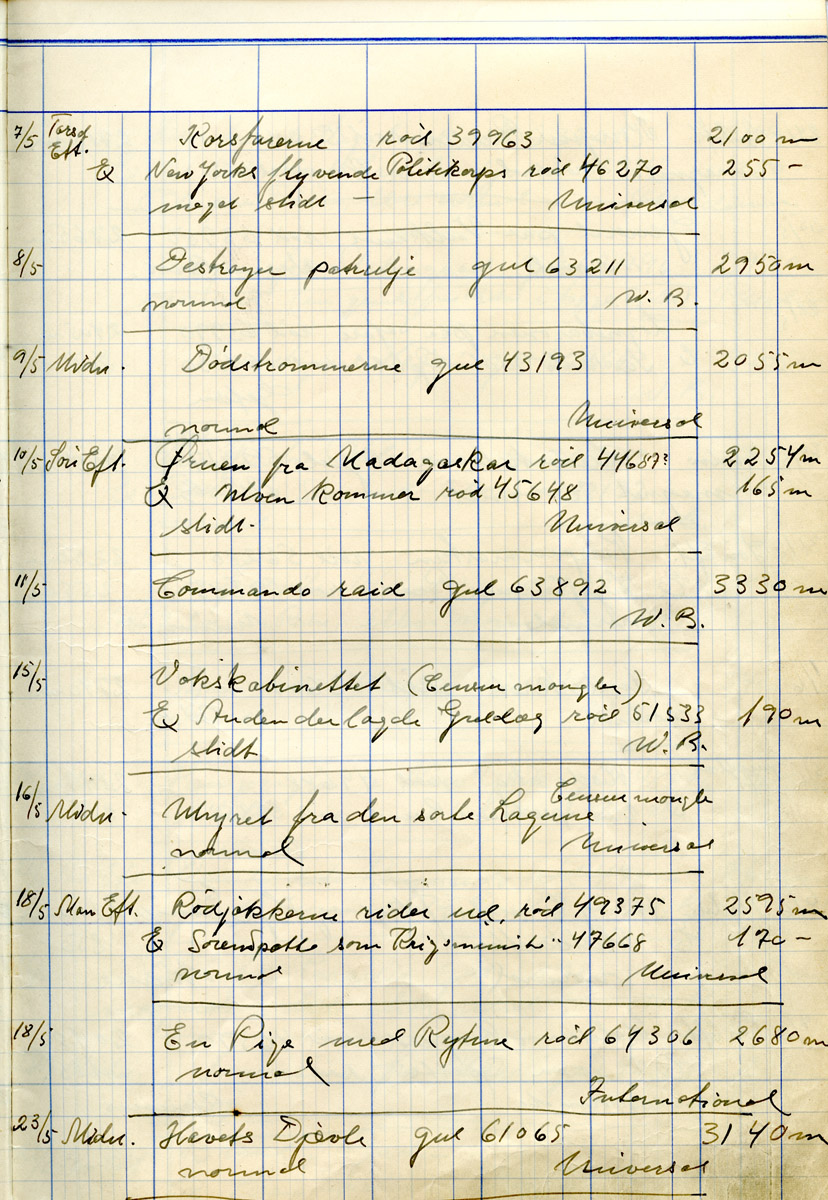 7/5 Torsd Eft. Korsfarerne röd 39963 2100 m
& New Yorks flyvende Politikorps röd 46270 255 -
meget slidt - Universal
8/5 Destroyer patrulje gul 63211 2950 m
normal W. B.
9/5 Midn. Dödstrommerne gul 43193 2055 m
normal Universal
10/5 Sön Eft. Örnen fra Madagaskar röd 44687? 2254 m
& Ulven Kommer röd 45648 165 m
slidt. Universal
11/5 Commando raid gul 63892 3330 m
W. B.
15/5 Vokskabinettet (Censur mangler)
& Anden der lagde Guldæg röd 61533 190 m
slidt W. B.
16/5 Midn. Uhyret fra den sorte Lagune Censur mangle
normal Universal
18/5 Man Eft. Rödjakkerne rider ud, röd 49375 2595 m
& som 47668 170 -
normal Universal
18/5 En Pige med Rytme röd 64306 2680 m
normal
International
23/5 Midn. Havets Djævle gul 61065 3140 m
normal Universal